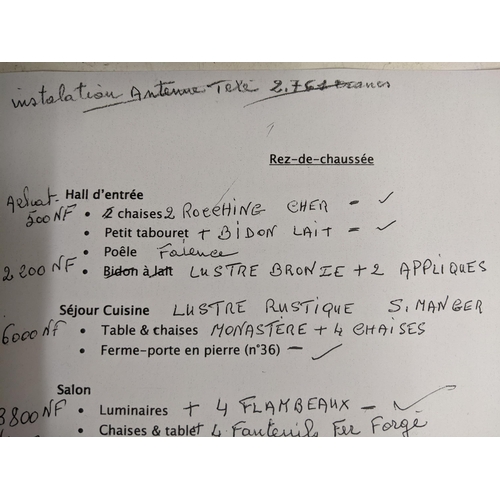 instalation Antenne Télé 2.761 Francs
Rez-de-chaussée
Achat. Hall d'entrée
500 NF • 2 chaises 2 ROCCHING CHER – ✓
• Petit tabouret + BIDON LAIT – ✓
• Poêle Faïence
2 200 NF • Bidon à lait LUSTRE BRONZE + 2 APPLIQUES
Séjour Cuisine LUSTRE RUSTIQUE S. MANGER
6000 NF • Table & chaises MONASTÈRE + 4 CHAISES
• Ferme-porte en pierre (n°36) – ✓
Salon
3800 NF • Luminaires + 4 FLAMBEAUX – ✓
• Chaises & table + 4 Fauteuils Fer Forgé